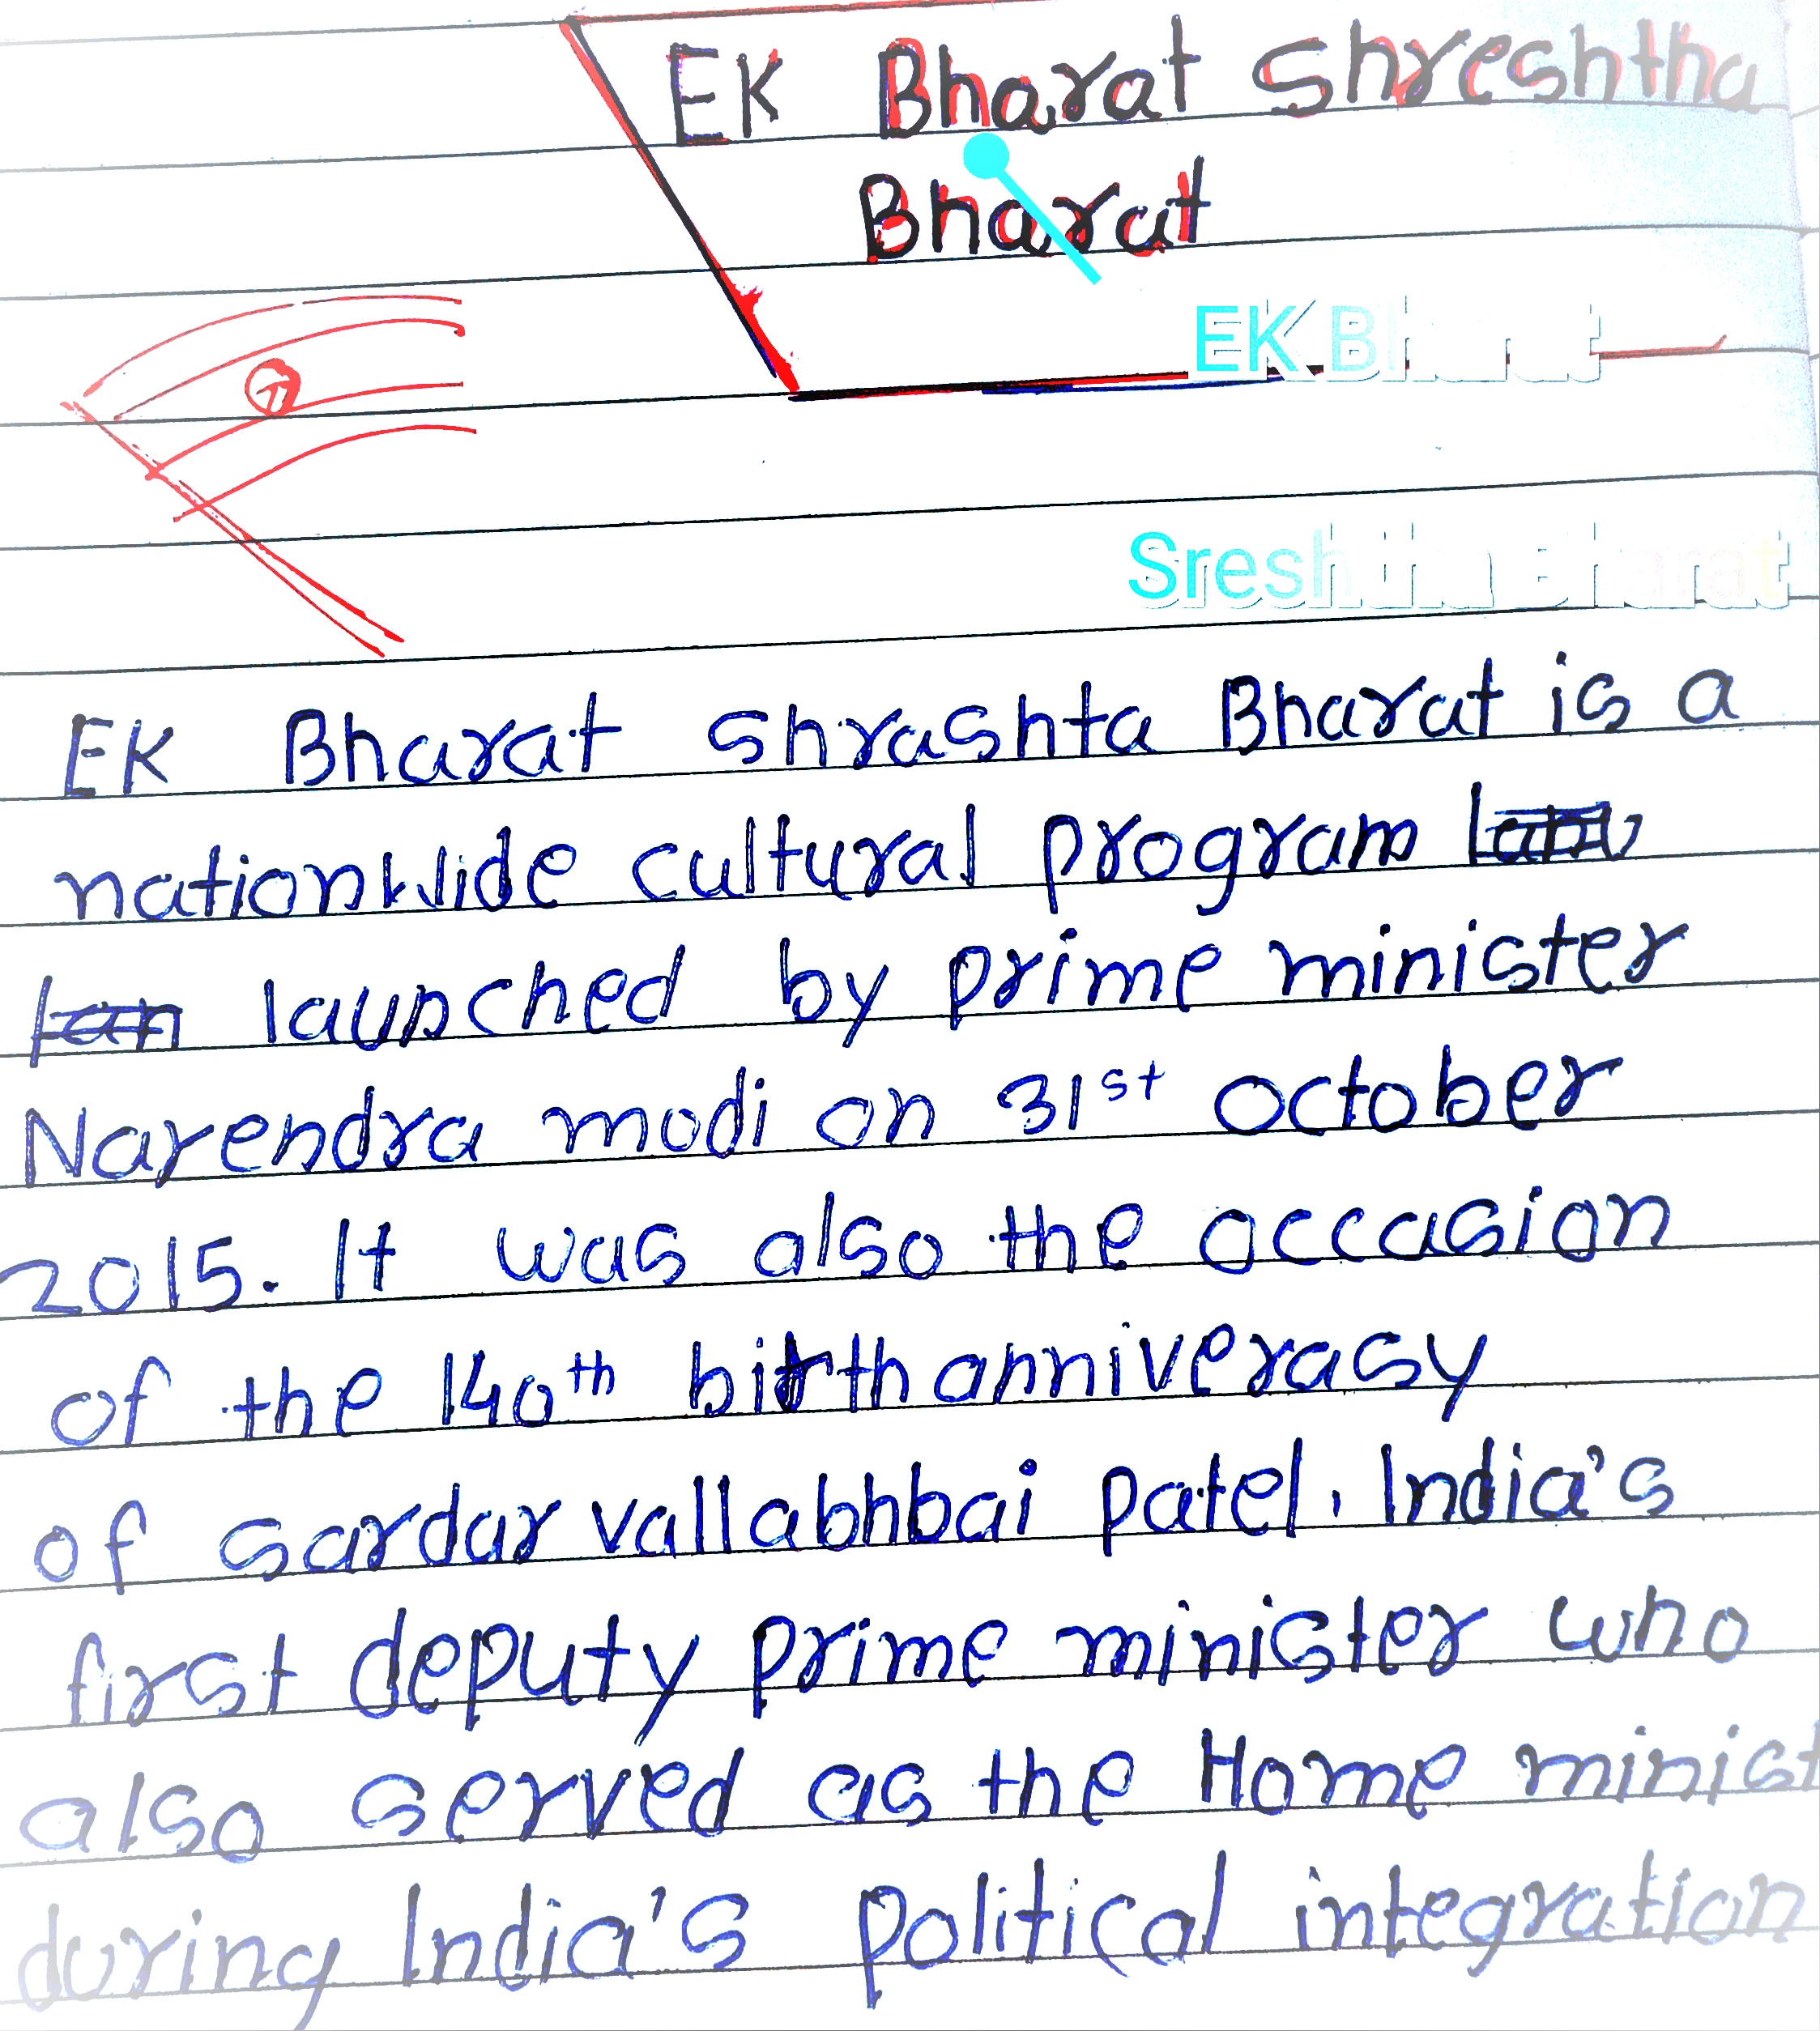 EK Bharat Shreshtha
Bharat
EK Bharat
Sreshtha Bharat
EK Bharat shrashta Bharat is a
nationwide cultural program
lan launched by prime minister
Narendra modi on 31st october
2015. It was also the occasion
of the 140th birth anniverasy
of sardar vallabhbai patel. India's
first deputy prime minister who
also served as the Home minist
during India's political integration